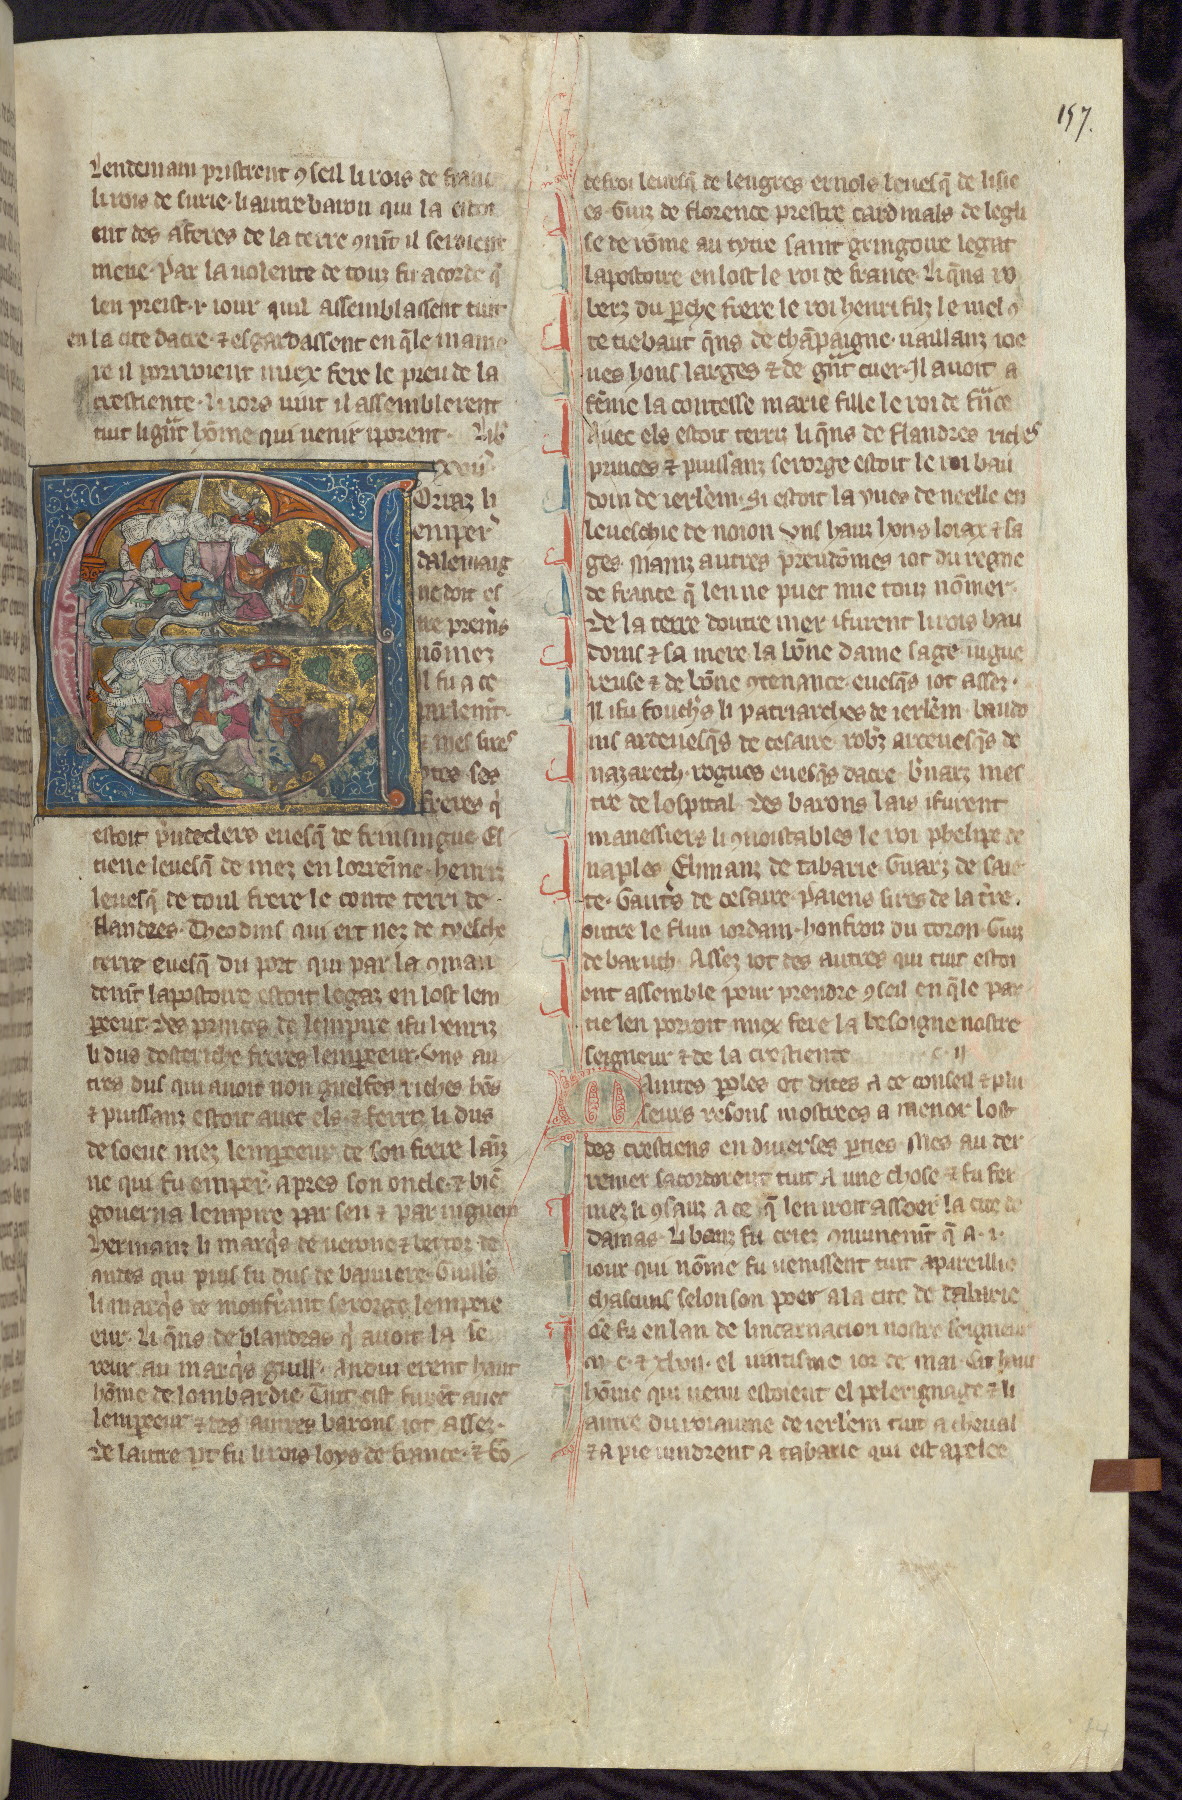 157.
Lendemain pristrent ꝯseil li rois de franc
li rois de surie· li autre baron qui la citoi
ent des aferes de la terre ꝯm̃t il seroient
mene· Par la uolente de touz fu acorde q̃
len preist ·i· iour quil assemblassent tuit
en la cite dacre· ⁊ esgardassent en q̃le manie
re il porroient miex fere le preu de la
crestiente· Li iors uint il assemblerent
tuit li gñt hõme qui uenir i porent· Lib̃
xvii
Orraz li
emper̃
dalemaig
ne doit es
tre prem̃s
nõmez
Il fu a ce
parlem̃t·
⁊ mes sires
otes ses
freres q̃
estoit p̃udeclers euesq̃ de frinsingue Es
tiene leuesq̃ de mez en lorreine· henriz
leuesq̃ de toul frere le conte terri de
flandres· Theodins qui ert nez de tyesche
terre euesq̃ du port qui par la ꝯman
dem̃t lapostoire estoit legaz en lost lem
pereur· Des princes de lempire i fu henriz
li dus dosteriche freres lempereur· Uns au
tres dus qui auoit non guelfes riches hõs
⁊ puissanz estoit auec els· ⁊ ferriz li dus
de soeue niez lempereur de son frere lainz
ne qui fu emper̃· apres son oncle· ⁊ biẽ
gouerna lempire par sen ⁊ par uigueur
hermanz li marq̃s de uerone ⁊ bertoz de
andes qui puis fu dus de bauiere· Guill̃s
li marq̃s de monferrant serorge lempere
eur· Li q̃ns de blandras q̃ auoit la se
reur au marq̃s guill̃· Andui erent haut
hõme de lombardie· Tuit cist furẽt auec
lempereur ⁊ des autres barons iot assez·
De lautre p̃t fu li rois loys de france· ⁊ Go
defroi leuesq̃ de lengres ernols leuesq̃ de lisie
es· Guiz de florence prestre cardinals de legli
se de rõme au tytre saint gringoire legat
lapostoire en lost le roi de france· Li q̃ns ro
berz du perche frere le roi henri filz le uiel ꝯ
te tiebaut q̃ns de chãpaigne· uaillanz ioe
nes hons larges ⁊ de gñt cuer· Il auoit a
fẽme la contesse marie fille le roi de frãce
Auec els estoit terriz li q̃ns de flandres riches
princes ⁊ puissanz serorge estoit le roi bau
doin de ierl̃em· Si estoit la yues de neelle en
leueschie de noion uns hauz hons loiax ⁊ sa
ges mainz autres preudõmes iot du regne
de france q̃ len ne puet mie touz nõmer·
De la terre doutre mer i furent li rois bau
doins ⁊ sa mere la bõne dame sage uigue
reuse ⁊ de bõne ꝯtenance· euesq̃s iot assez·
Il i fu fouch̃s li patriarches de ierl̃em· baudo
ins arceuesq̃s de cesaire· rob̃z arceuesq̃s de
nazareth· rogues euesq̃s dacre· b̃narz mes
tre de lospital· Des barons lais i furent
manessiers li ꝯnoistables le roi phelipe de
naples Elinanz de tabarie Guarz de saie
te· Gaut̃s de cesaire· paiens sires de la t̃re
outre le flun iordain· honfroiz du toron· Guiz
de baruth· Assez iot des autres qui tuit estoi
ent assemble pour prendre ꝯseil en q̃le par
tie len porroit miex fere la besoigne nostre
seigneur ⁊ de la crestiente c· ii
Maintes p̃oles ot dites a ce conseil ⁊ plu
seurs resons mostrees a mener lost
des crestiens en diuerses p̃ties· Mes au der
renier sacorderent tuit a une chose ⁊ fu fer
mez li ꝯsauz a ce q̃ len iroit asseer la cite de
damas· Li bans fu criez ꝯmunem̃t q̃ a ·i·
iour qui nõme fu uenissent tuit apareillie
chascuns selon son poer a la cite de tabarie
Ce fu en lan de lincarnacion nostre seigneur
m· c· ⁊ xlvii· el uintisme ior de mai· Cil haut
hõme qui uenu estoient el pelerignage ⁊ li
autre du roiaume de ierl̃em tuit a cheual
⁊ a pie uindrent a tabarie qui est apelee